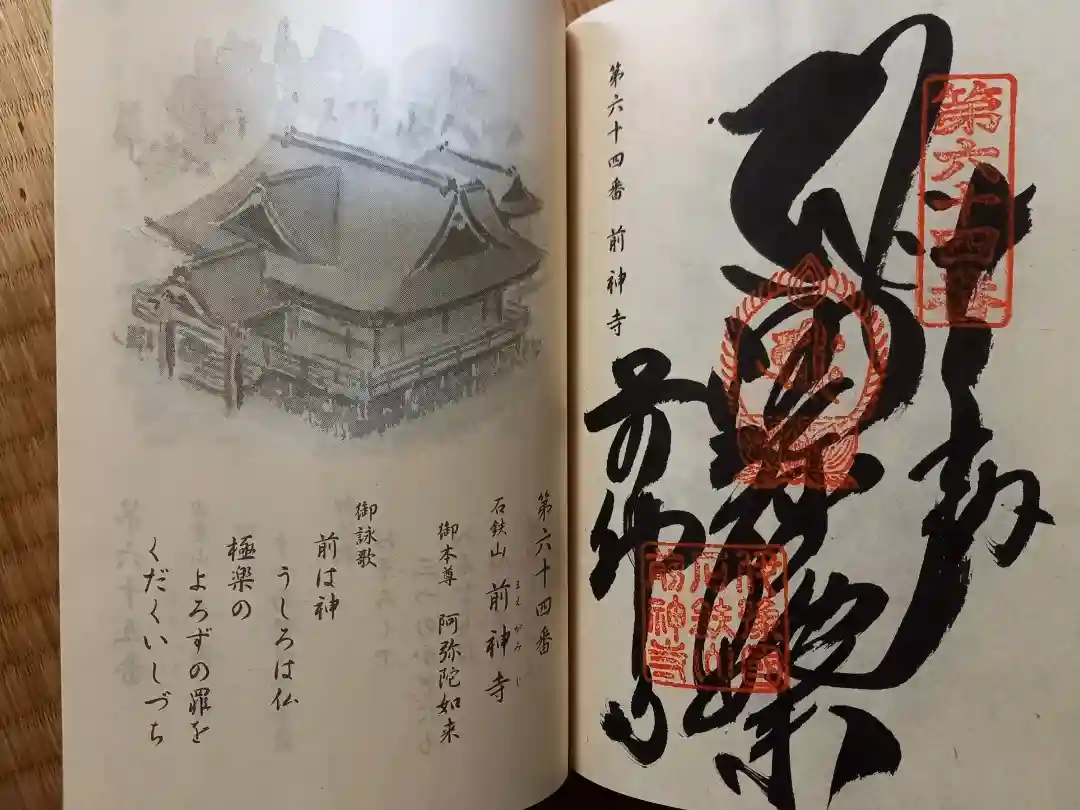 第六十四番 前神寺
第六十四番
奉納
前神寺
第六十四番
石鉄山 前神寺
まえ がみ じ
御本尊 阿弥陀如来
御詠歌
前は神
うしろは仏
極楽の
よろずの罪を
くだくいしづち